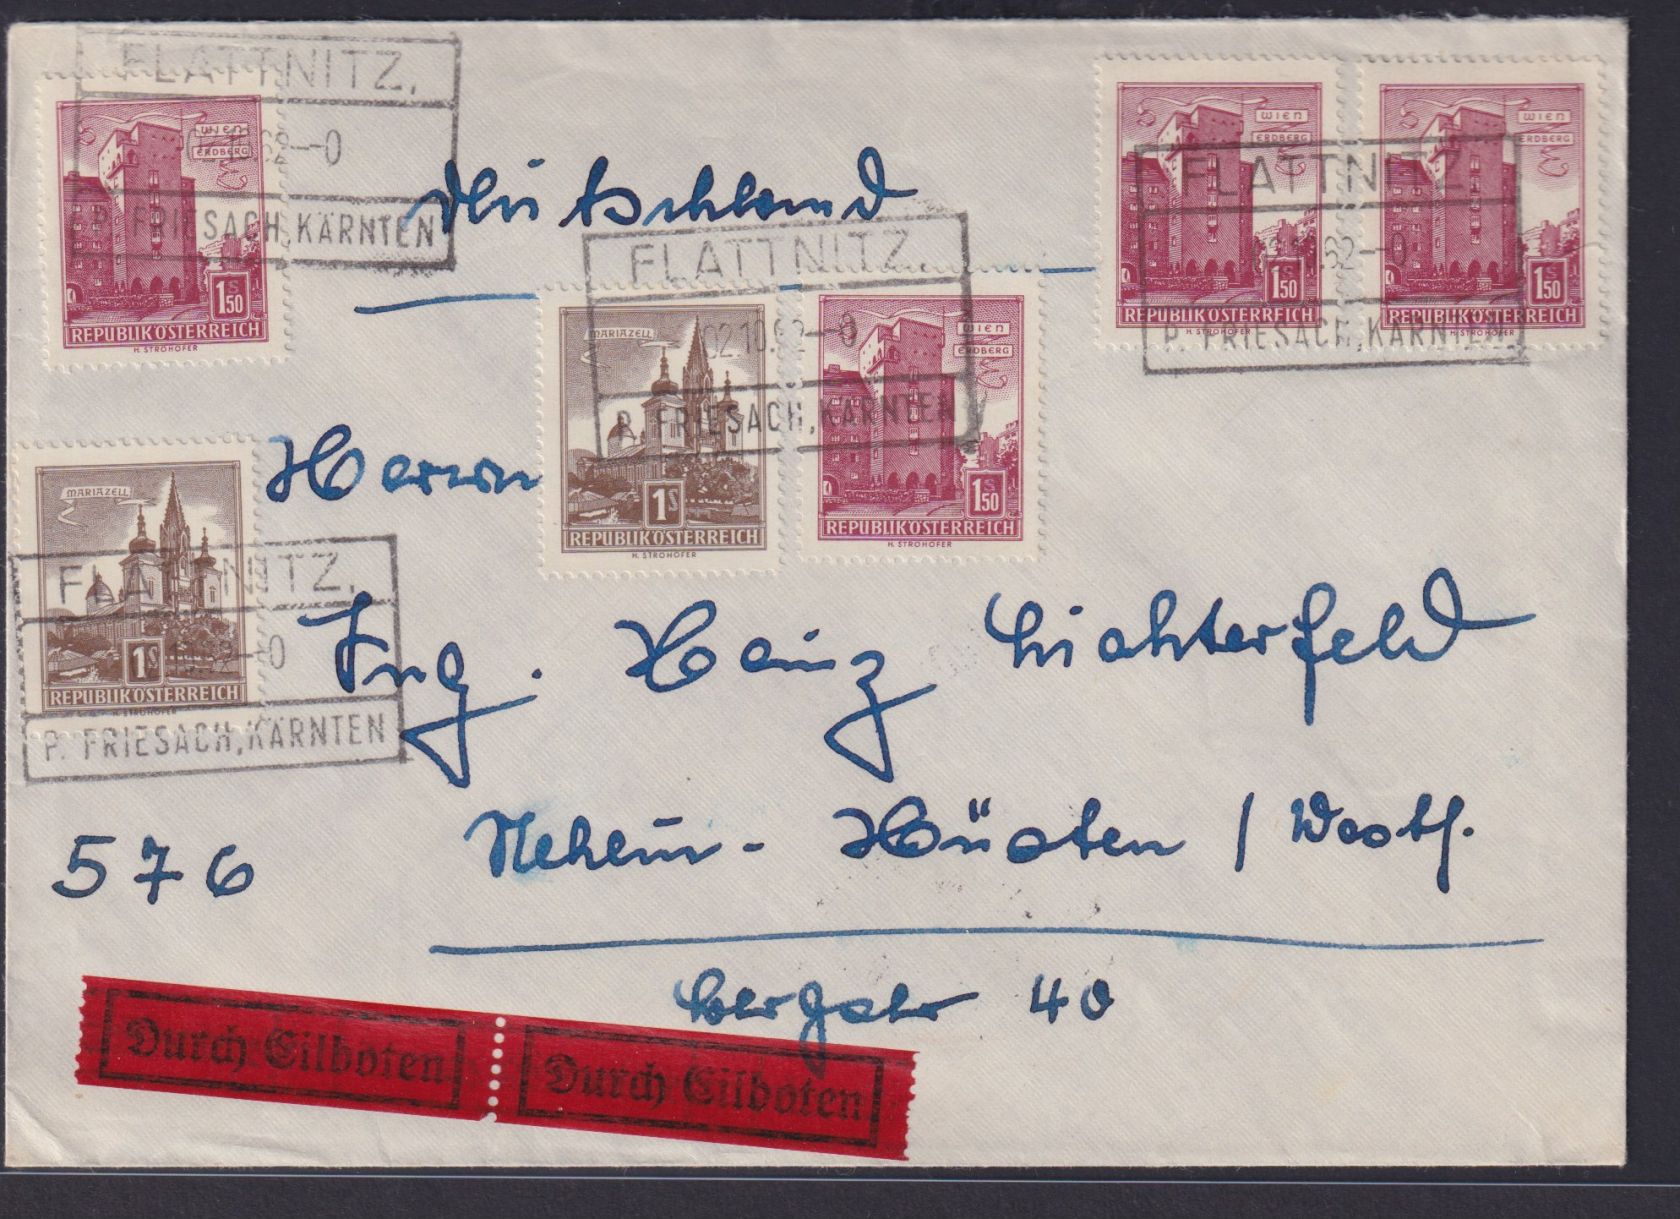 FLATTNITZ,
62--0
P. FRIESACH, KÄRNTEN
WIEN
ERDBERG
1S50
REPUBLIK ÖSTERREICH
H. STROHOFER
Deutschland
WIEN
ERDBERG
1S50
REPUBLIK ÖSTERREICH
H. STROHOFER
WIEN
ERDBERG
1S50
REPUBLIK ÖSTERREICH
H. STROHOFER
FLATTNITZ
62--0
P. FRIESACH, KÄRNTEN
FLATTNITZ
02.10.62--0
P. FRIESACH, KÄRNTEN
MARIAZELL
1S
REPUBLIK ÖSTERREICH
H. STROHOFER
WIEN
ERDBERG
1S50
REPUBLIK ÖSTERREICH
H. STROHOFER
Herrn
MARIAZELL
1S
REPUBLIK ÖSTERREICH
H. STROHOFER
FLATTNITZ,
P. FRIESACH, KÄRNTEN
Ing. Heinz Lichterfeld
576 Neheim-Hüsten / Westf.
40
Durch Eilboten
Durch Eilboten